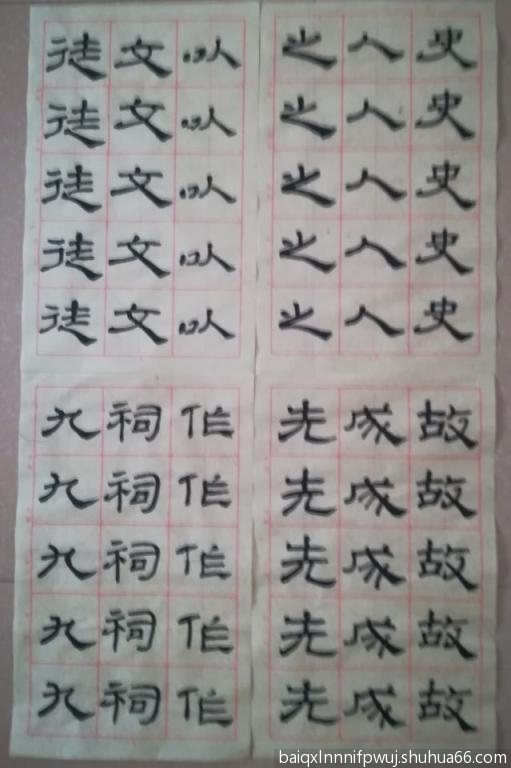 史史史史史
人人人人人
之之之之之
以以以以以
文文文文文
徒徒徒徒徒
故故故故故
成成成成成
先先先先先
作作作作作
祠祠祠祠祠
九九九九九
baiqxlnnnifpwuj.shuhua66.com